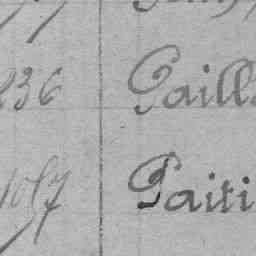 236 Paill
1057 Paiti